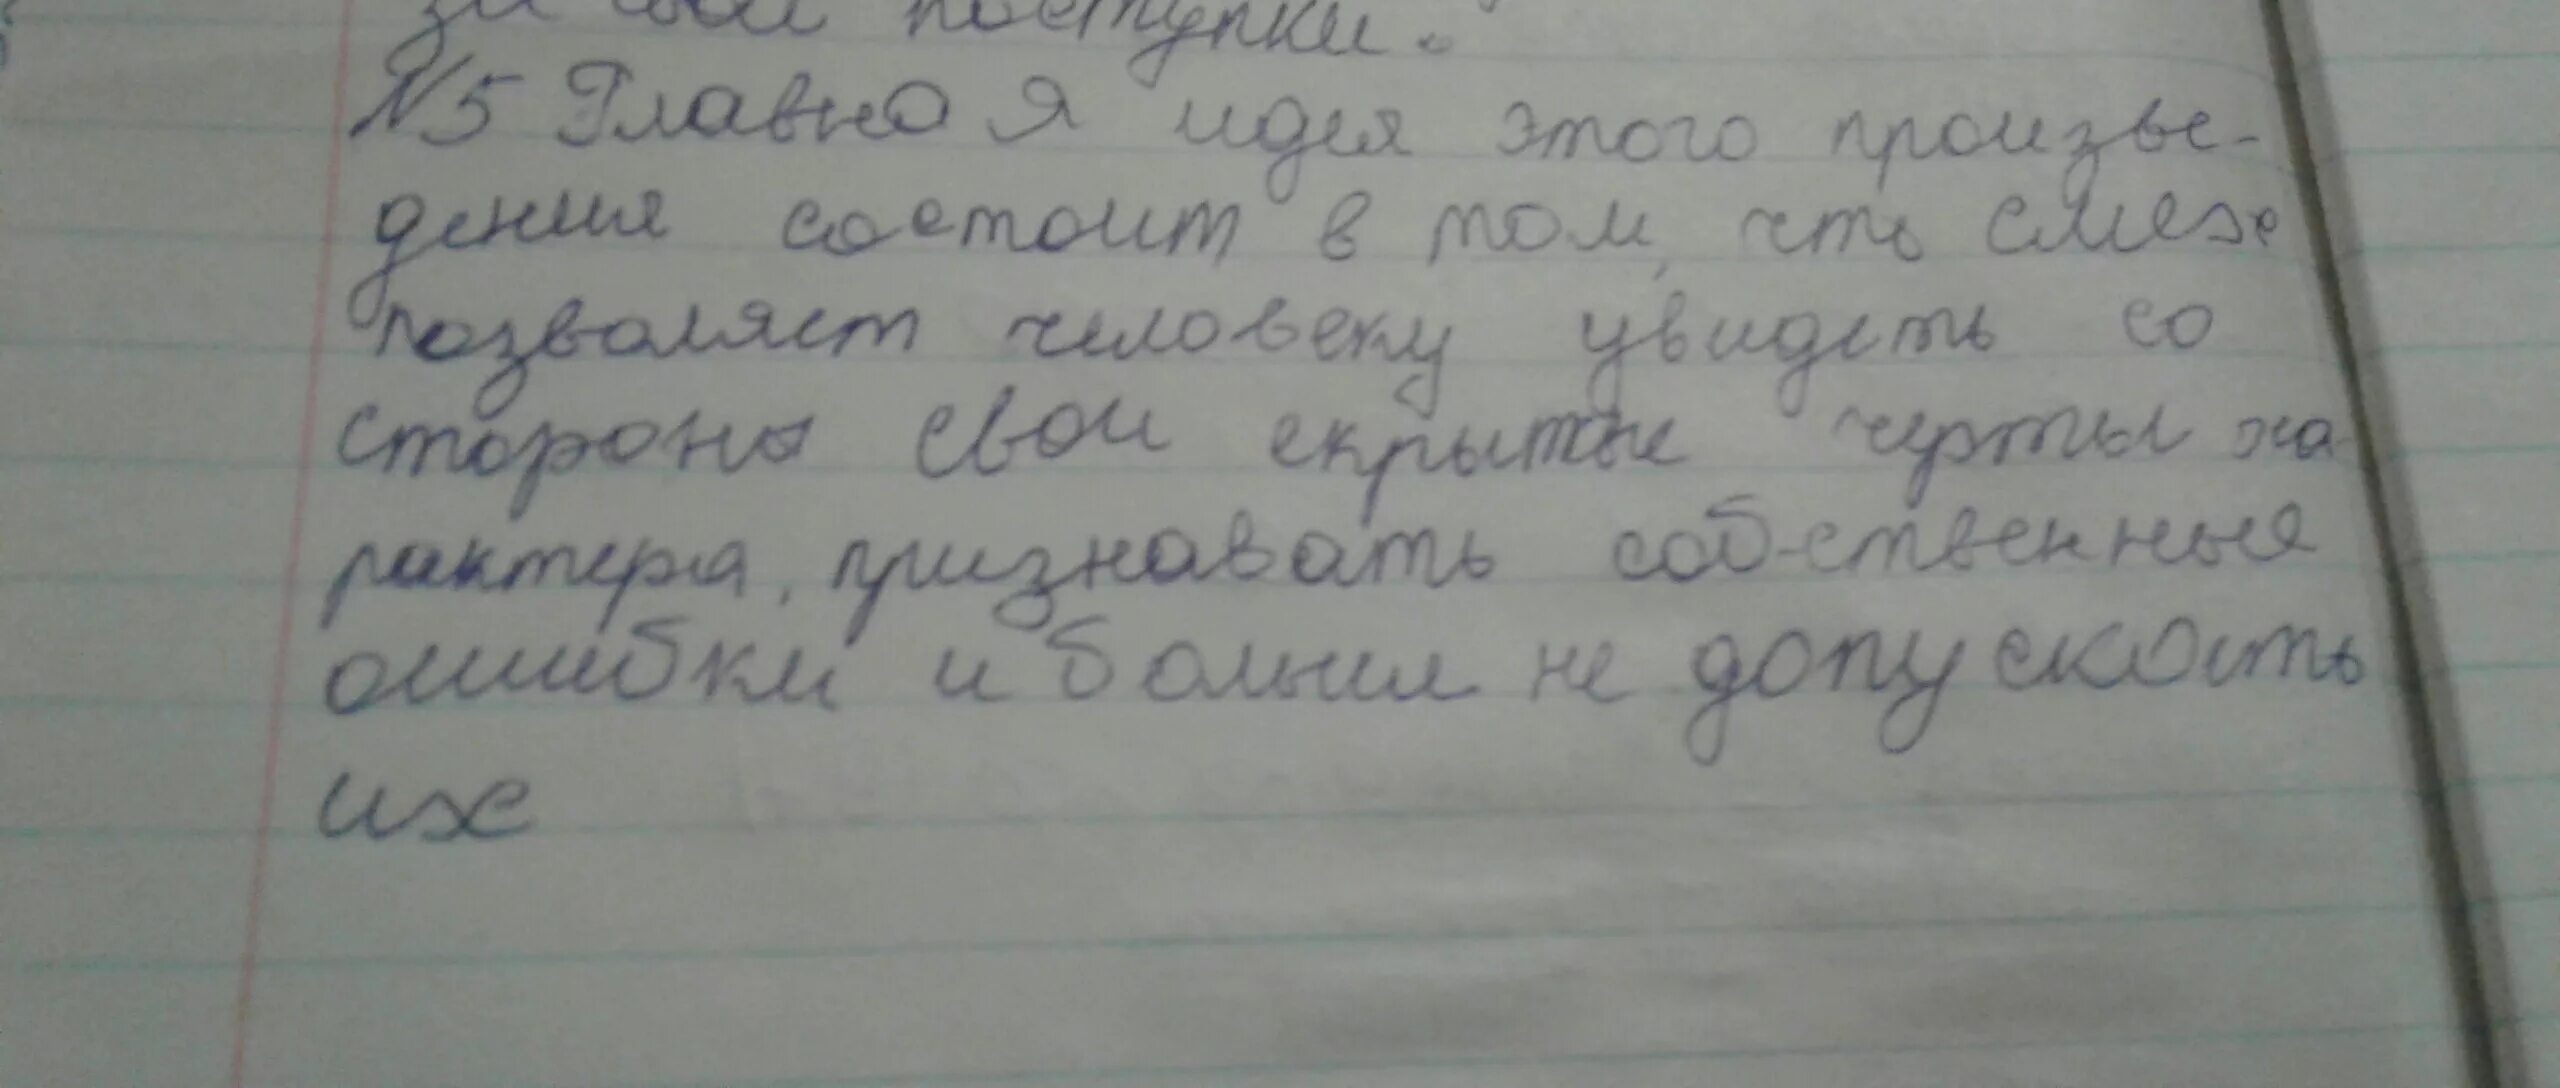 за свои поступки.
№5 Главная идея этого произве-
дения состоит в том, что смех
позволяет человеку увидеть со
стороны свои скрытые черты ха-
рактера, признавать собственные
ошибки и больше не допускать
их